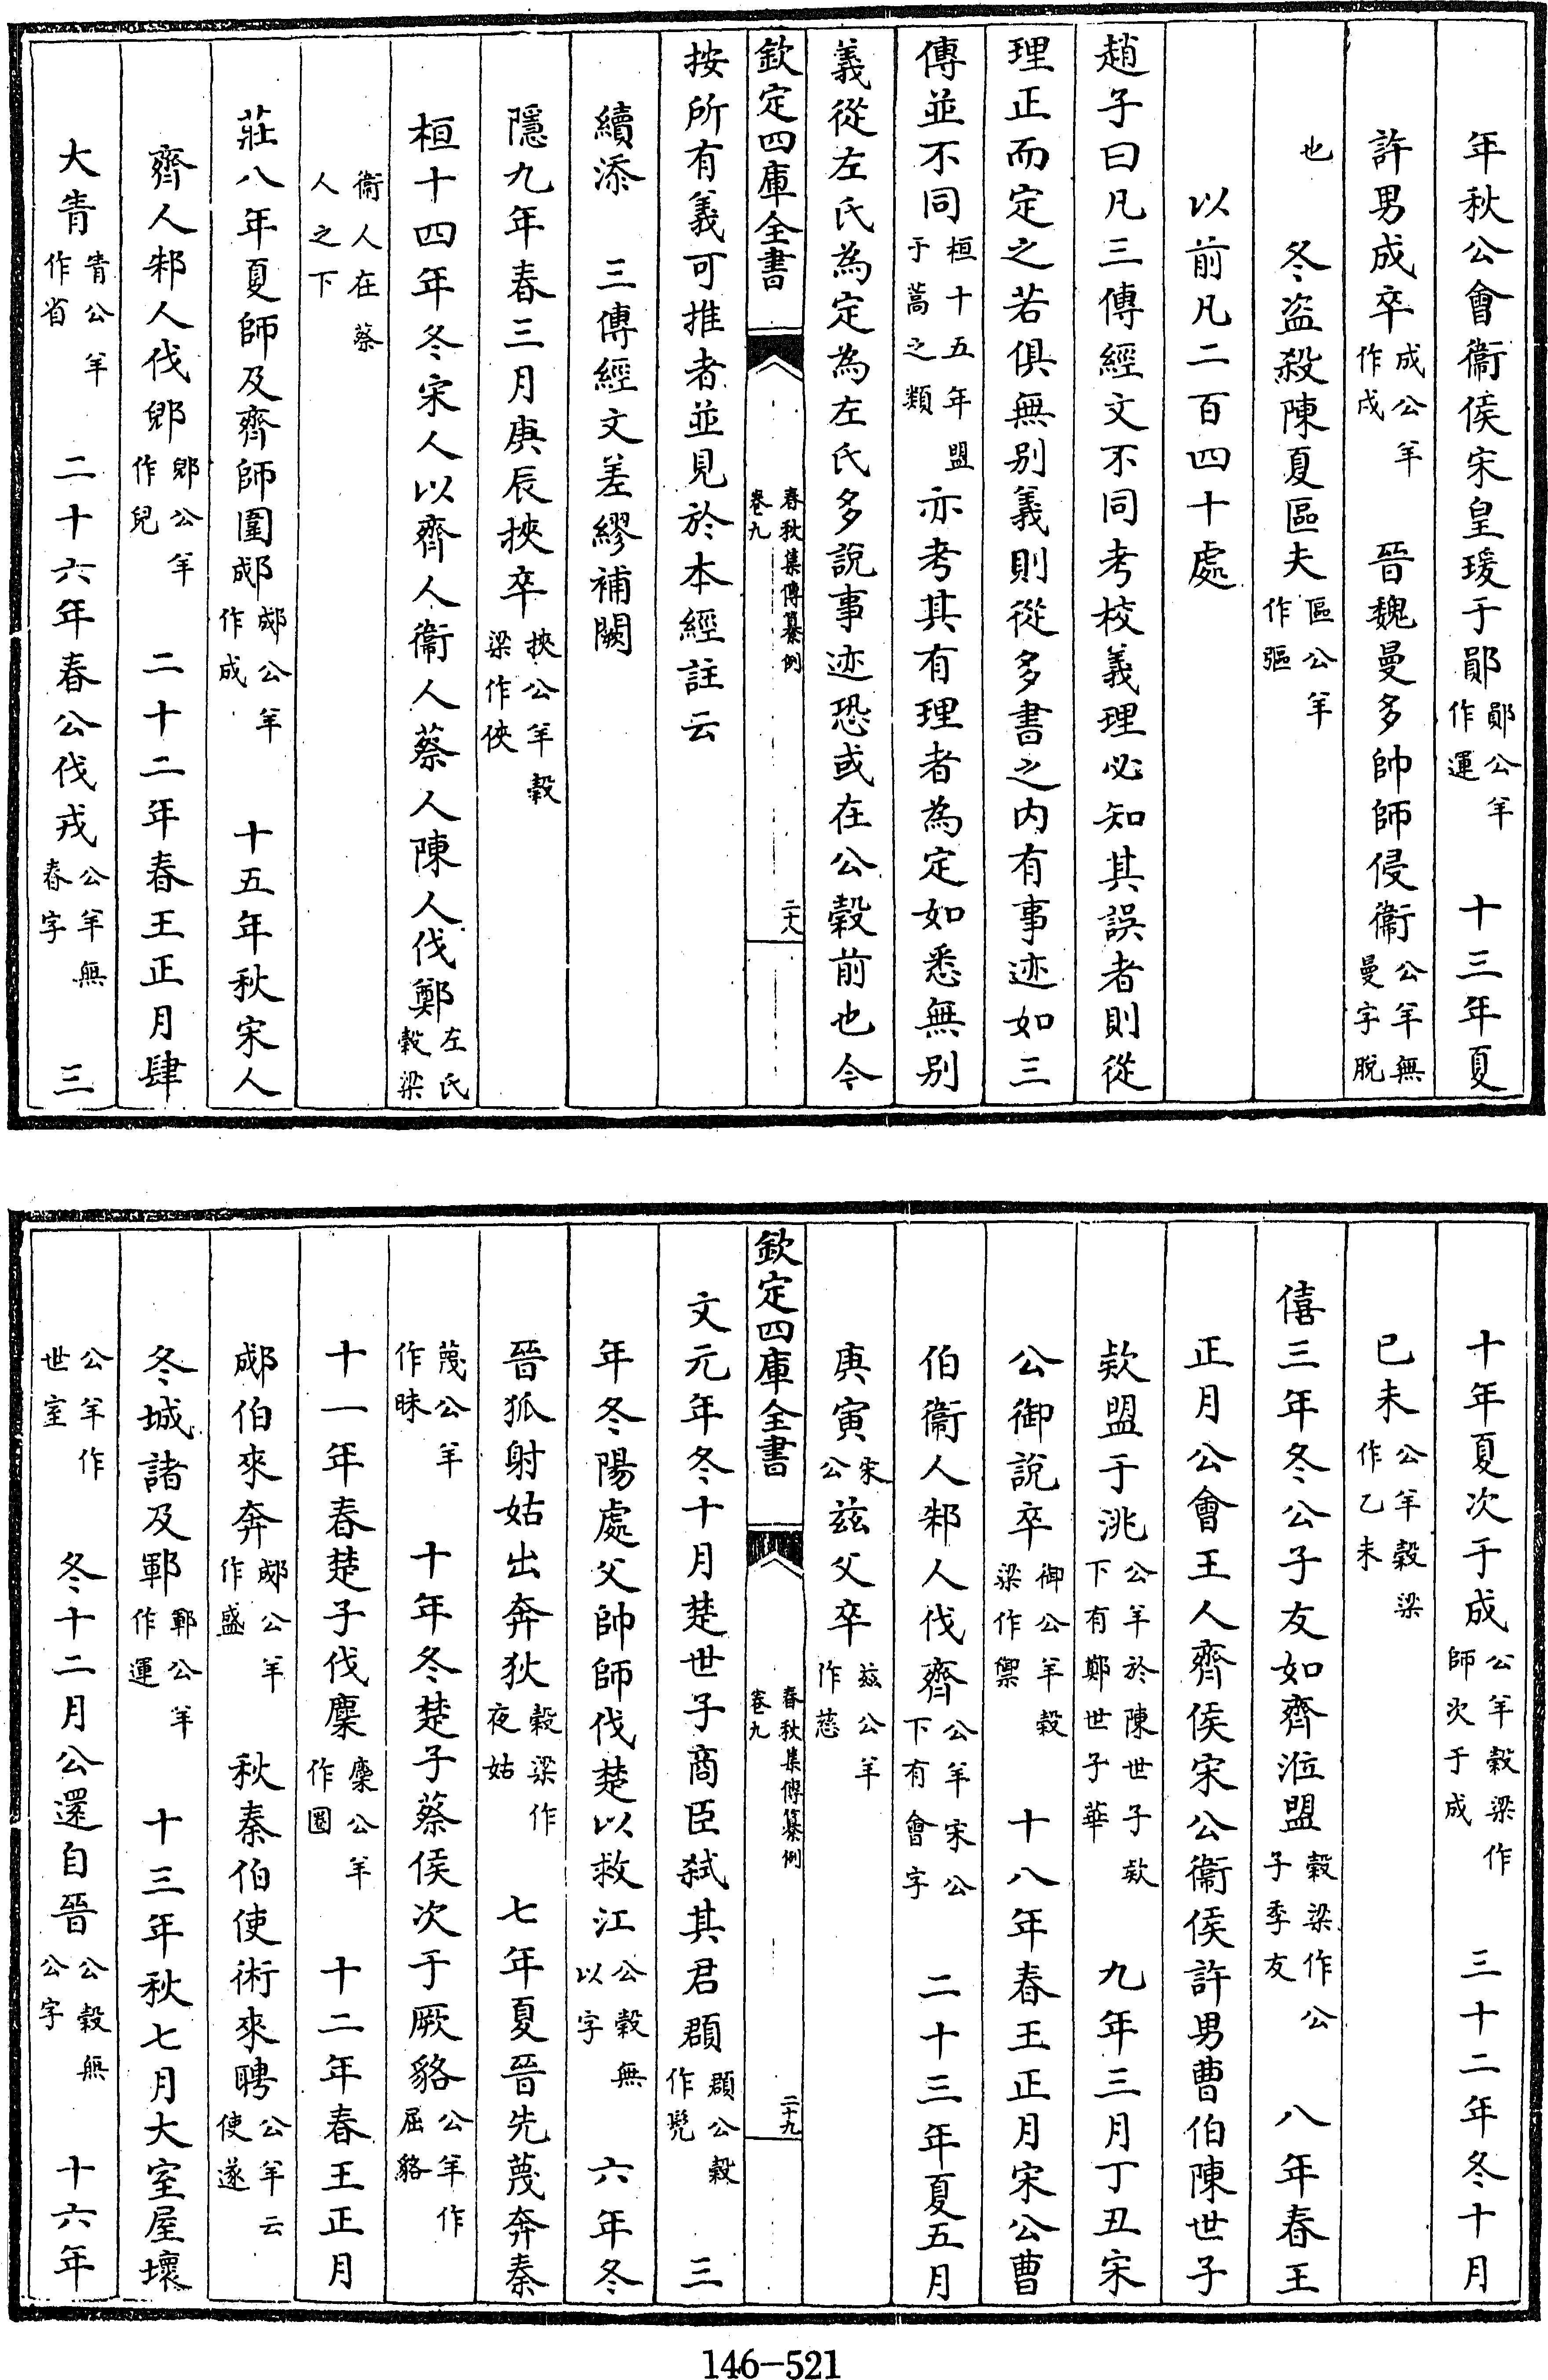 年秋公會衞侯宋皇瑗于鄖鄖公羊作運 十三年夏
許男成卒成公羊作戌 晉魏曼多帥師侵衞公羊無曼字脫
也 冬盗殺陳夏區夫區公羊作彄
以前凡二百四十處
趙子曰凡三傳經文不同考校義理必知其誤者則從
理正而定之若俱無别義則從多書之内有事迹如三
傳並不同桓十五年盟于蒿之類亦考其有理者為定如悉無别
義從左氏為定為左氏多說事迹恐或在公穀前也今
欽定四庫全書 春秋集傳纂例卷九 二十八
按所有義可推者並見於本經註云
續添 三傳經文差繆補闕
隱九年春三月庚辰挾卒挾公羊穀梁作俠
桓十四年冬宋人以齊人衞人蔡人陳人伐鄭左氏穀梁
衞人在蔡人之下
莊八年夏師及齊師圍郕郕公羊作成 十五年秋宋人
齊人邾人伐郳郳公羊作兒 二十二年春王正月肆
大眚眚公羊作省 二十六年春公伐戎公羊無春字 三
十年夏次于成公羊穀梁作師次于成 三十二年冬十月
已未公羊穀梁作乙未
僖三年冬公子友如齊涖盟穀梁作公子季友 八年春王
正月公會王人齊侯宋公衞侯許男曹伯陳世子
欵盟于洮公羊於陳世子欵下有鄭世子華 九年三月丁丑宋
公御說卒御公羊穀梁作禦 十八年春王正月宋公曹
伯衞人邾人伐齊公羊宋公下有會字 二十三年夏五月
庚寅宋公兹父卒兹公羊作慈
欽定四庫全書 春秋集傳纂例卷九 二十九
文元年冬十月楚世子商臣弑其君頵頵公穀作髡 三
年冬陽處父帥師伐楚以救江公穀無以字 六年冬
晉狐射姑出奔狄穀梁作夜姑 七年夏晉先蔑奔秦
蔑公羊作眛 十年冬楚子蔡侯次于厥貉公羊作屈貉
十一年春楚子伐麇麇公羊作圈 十二年春王正月
郕伯來奔郕公羊作盛 秋秦伯使術來聘公羊云使遂
冬城諸及鄆鄆公羊作運 十三年秋七月大室屋壞
公羊作世室 冬十二月公還自晉公穀無公字 十六年
146-521